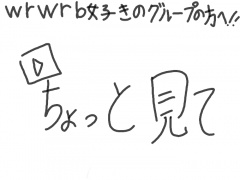 wrwrb好きのグループの方へ!!
ちょっと見て